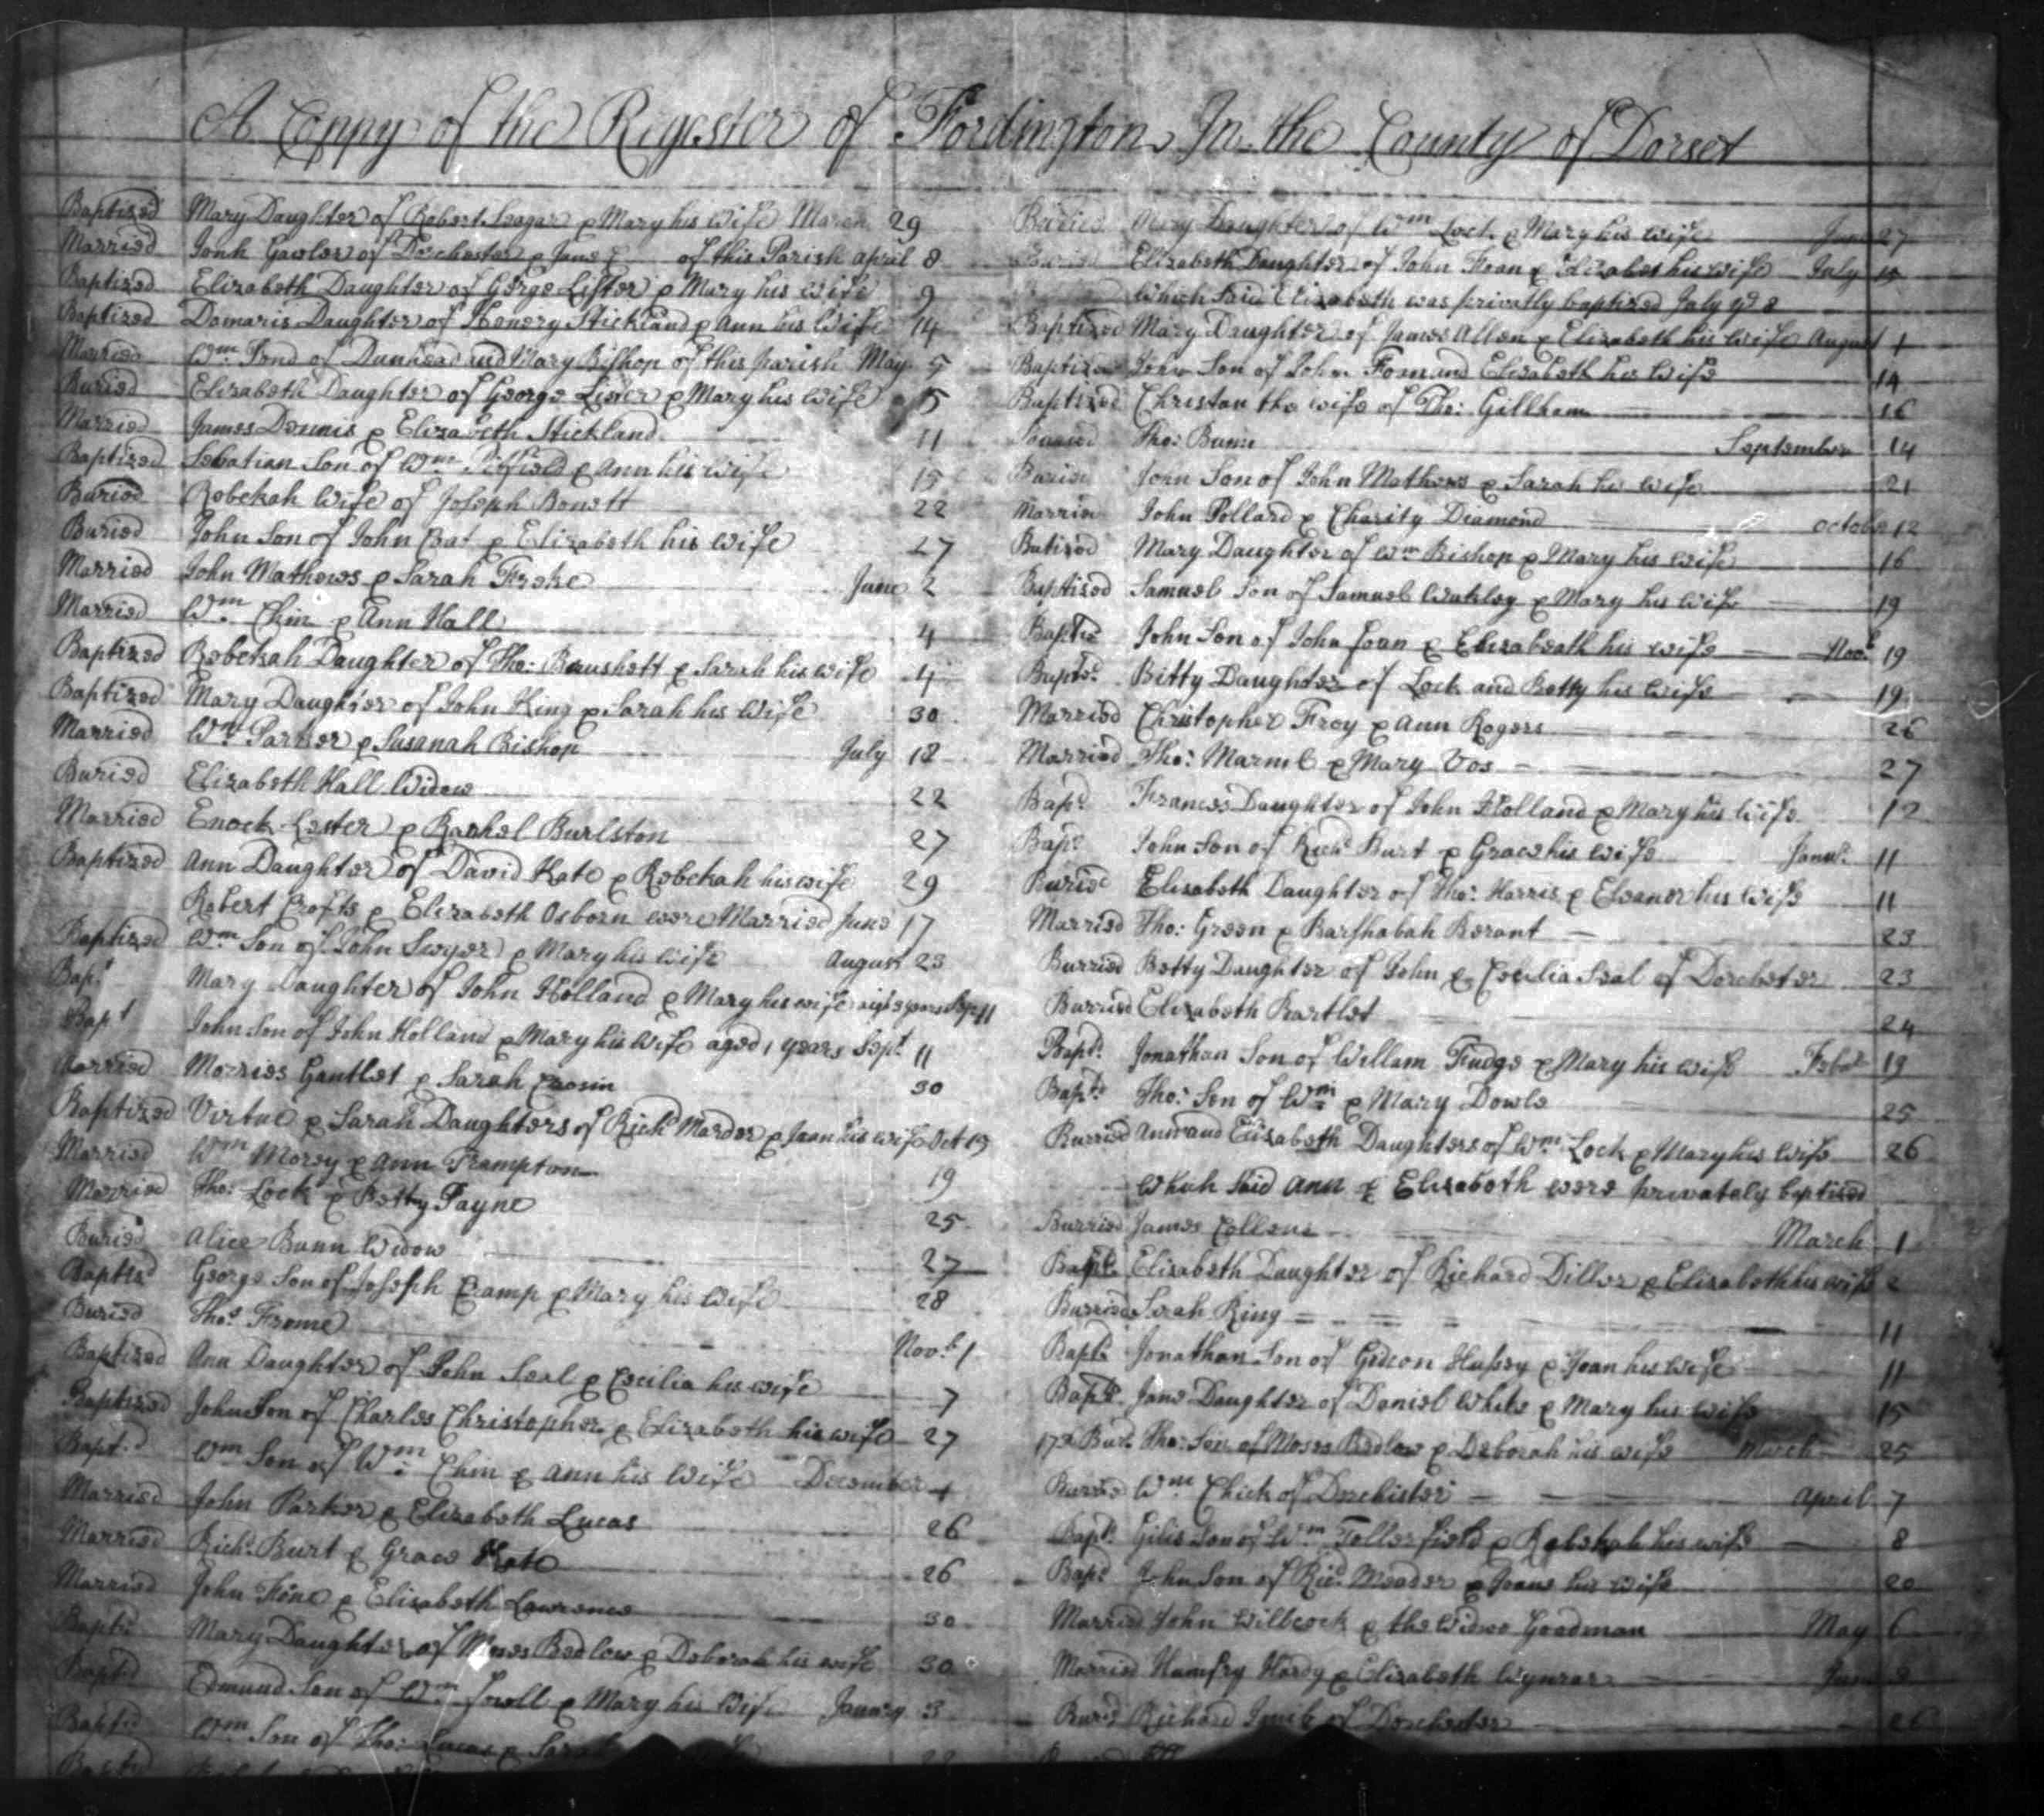 A Coppy of the Rigester of Fordington In the County of Dorset
Baptized Mary Daughter of Robert Seagar & Mary his wife March 29
Married Jonh Gawler of Dorchester & Jane of this Parish april 8
Baptized Elizabeth Daughter of Gorge Lister & Mary his wife 9
Baptized Domaris Daughter of Henery Stickland & Ann his Wife 14
Married Wm Fond of Dunhead and Mary Bishop of this parish May 5
Buried Elizabeth Daughter of George Lister & Mary his wife 5
Married James Dennis & Elizabeth Stickland 11
Baptized Sebatian Son of Wm Pitfield & Ann his wife 15
Buried Rebekah Wife of Joseph Bonett 22
Buried John Son of John Bat & Elizabeth his wife 27
Married John Mathews & Sarah Froke June 2
Married Wm Chin & Ann Hall 4
Baptized Rebekah Daughter of Tho: Brushett & Sarah his wife 4
Baptized Mary Daughter of John King & Sarah his Wife 30
Married Wm Parker & Susanah Bishop July 18
Buried Elizabeth Hall Widow 22
Married Enock Lester & Rachel Burlston 27
Baptized Ann Daughter of David Kate & Rebekah his wife 29
Robert Crofts & Elizabeth Osborn were Married June 17
Baptized Wm Son of John Swyer & Mary his wife August 23
Bapt Mary Daughter of John Holland & Mary his wife Sep 11
Bapt John Son of John Holland & Mary his Wife aged 1 years Sept 11
Married Morries Gantlet & Sarah Crosin 30
Baptized Virtue & Sarah Daughters of Richd Marder & Joan his wife Oct 19
Married Wm Morey & Ann Frampton 19
Married Tho: Lock & Betty Payne 25
Buried Alice Bunn Widow 27
Baptisd George Son of Joseph Cramp & Mary his Wife 28
Buried Tho: Frome Novbr 1
Baptized Ann Daughter of John Seal & Cecilia his wife 7
Baptized John Son of Charles Christopher & Elizabeth his wife 27
Baptd Wm Son of Wm Chin & Ann his Wife December 4
Married John Parker & Elizabeth Lucas 26
Married Richd Burt & Grace Kate 26
Married John Fone & Elizabeth Lawrence 30
Baptd Mary Daughter of Moses Bedlow & Deborah his wife 30
Baptd Edmund Son of Wm & Mary his Wife January 3
Baptd Wm Son of Tho: Lucas & Sarah
Buried Mary Daughter of Wm Lock & Mary his wife June 27
Buried Elizabeth Daughter of John Foan & Elizabet his wife July
Which said Elizabeth was privatly baptized July ye 8
Baptized Mary Daughter of James Allen & Elizabeth his Wife August 1
Baptized John Son of John Foan and Elizabeth his Wife 14
Baptized Christan the wife of Tho: Gillham 16
Buried Tho: Bunn September 14
Buried John Son of John Mathews & Sarah his wife 21
Married John Pollard & Charity Diamond October 12
Batized Mary Daughter of Wm Bishop & Mary his wife 16
Baptised Samuel Son of Samuel Wakley & Mary his wife 19
Baptiz John Son of John foan & Elizabeath his wife Novbr 19
Baptsd Bitty Daughter of Lock and Betty his Wife 19
Married Christopher Froy & Ann Rogers 26
Married Tho: Marnel & Mary Vos 27
Bapd Frances Daughter of John Holland & Mary his Wife 12
Bapd John Son of Richd Burt & Grace his wife Januy 11
Buried Elizabeth Daughter of Tho: Harris & Eleanor his Wife 11
Married Tho: Green & Barshabah Berant 23
Burried Betty Daughter of John & Cecilia Seal of Dorchester 23
Burried Elizabeth Bartlet 24
Baptd Jonathan Son of Willam Fudge & Mary his wife Febr 19
Baptd Tho: Son of Wm & Mary Dowle 25
Burried Ann and Elizabeth Daughters of Wm Lock & Mary his Wife 26
Which Said Ann & Elizabeth were privately baptised
Burried James Collens March 1
Bapt Elizabeth Daughter of Richard Diller & Elizabeth his wife 2
Burried Sarah King 11
Baptd Jonathan Son of Gideon Hussey & Joan his Wife 11
Baptd Jane Daughter of Daniel White & Mary his wife 15
Bur Tho: Son of Moses Bedlow & Deborah his wife March 25
Burried Wm Chick of Dorchister april 7
Bapt Gilis Son of Wm Tollerfield & Rebekah his wife 8
Bapd John Son of Ricd Meader & Joane his wife 20
Married John Willcock & the Widwo Goodman May 6
Married Humfry Hardy & Elizabeth June 3
Burd Richard of Dorchester 26